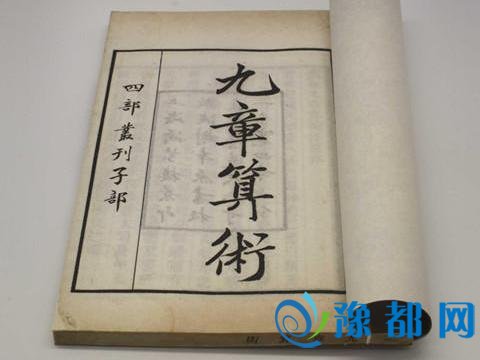 九章算術
四部叢刊子部
豫都网